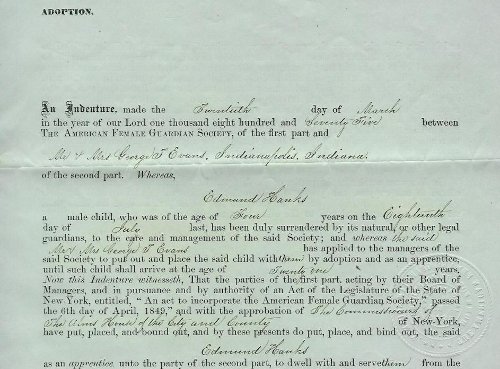 ADOPTION.
An Indenture, made the Twentieth day of March
in the year of our Lord one thousand eight hundred and Seventy Five between
THE AMERICAN FEMALE GUARDIAN SOCIETY, of the first part and
Mr & Mrs George T Evans, Indianapolis, Indiana.
of the second part. Whereas,
Edmund Hanks
a male child, who was of the age of Four years on the Eighteenth
day of July last, has been duly surrendered by its natural, or other legal
guardians, to the care and management of the said Society; and whereas the said
Mr & Mrs George T Evans has applied to the managers of the
said Society to put out and place the said child with them by adoption and as an apprentice,
until such child shall arrive at the age of Twenty one years,
Now this Indenture witnesseth, That the parties of the first part, acting by their Board of
Managers, and in pursuance and by authority of an Act of the Legislature of the State of
New-York, entitled, "An act to incorporate the American Female Guardian Society," passed
the 6th day of April, 1849," and with the approbation of The Commissioners of
The Alms House of the City and County of New-York,
have put, placed, and bound out, and by these presents do put, place, and bind out, the said
Edmund Hanks
as an apprentice unto the party of the second part, to dwell with and serve them from the